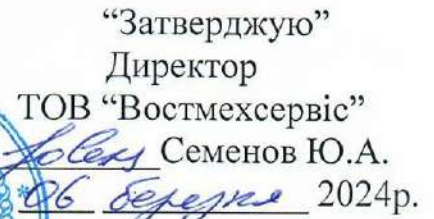 “Затверджую”
Директор
ТОВ “Востмехсервіс”
Семенов Ю.А.
06 березня 2024р.